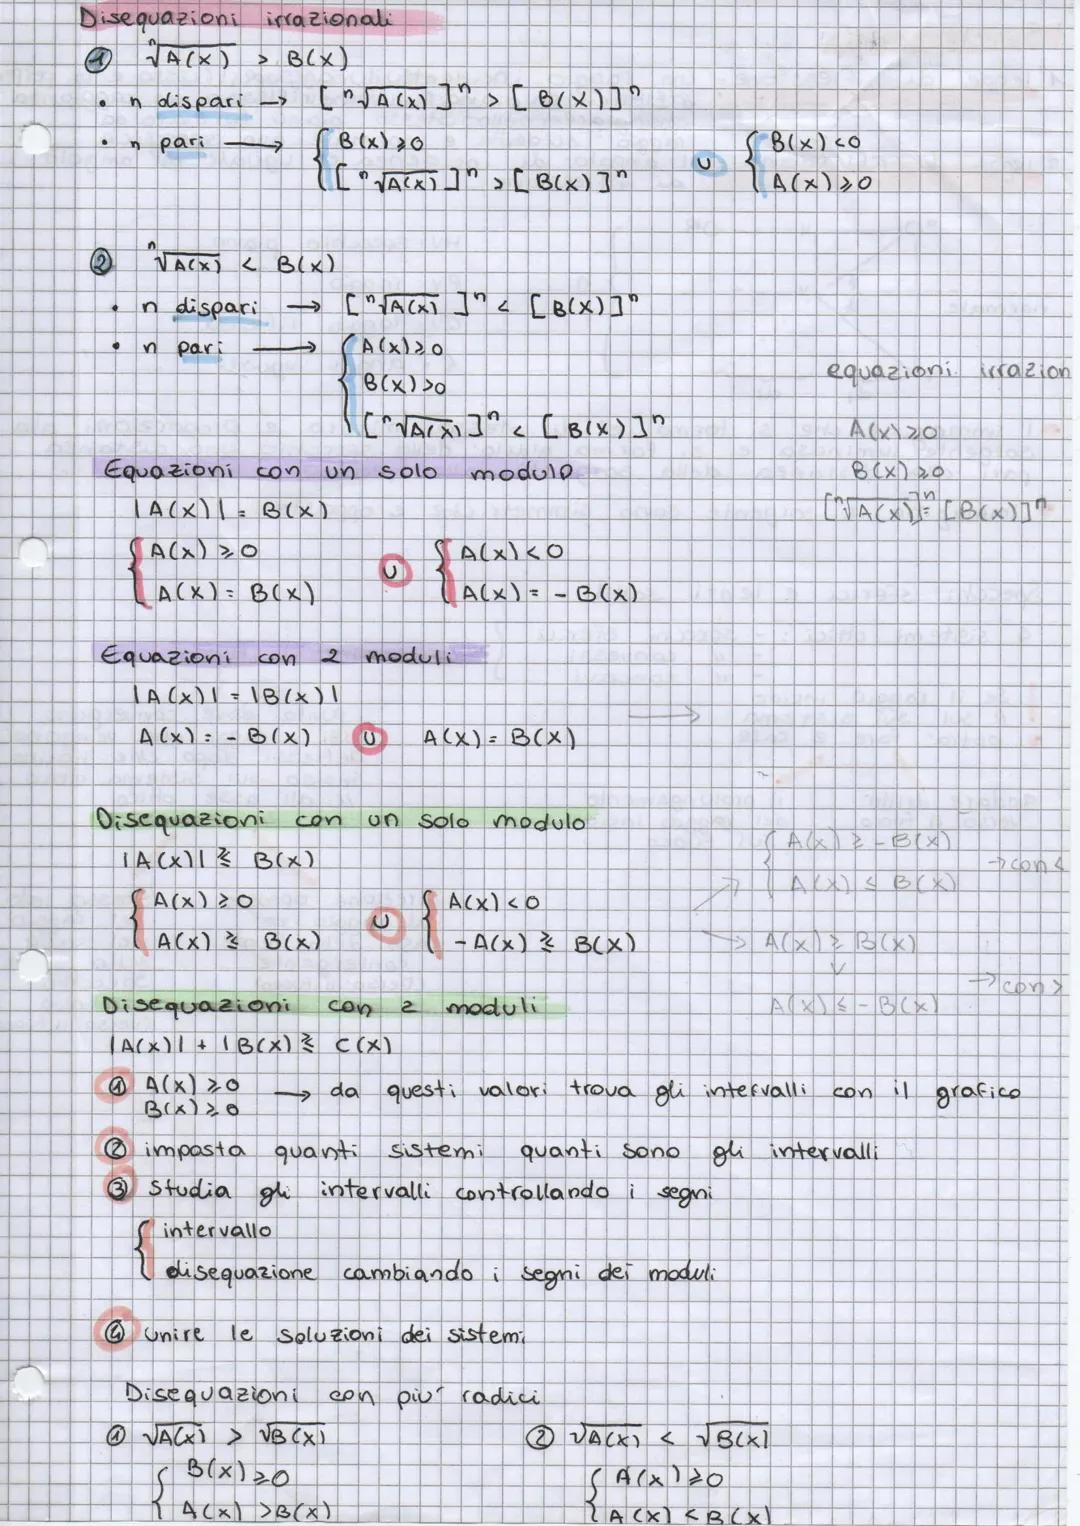 Disequazioni irrazionali
① ⁿ√A(x) > B(x)
• n dispari → [ⁿ√A(x)]ⁿ > [B(x)]ⁿ
• n pari → { B(x) ⩾ 0 ∪ { B(x) < 0
[ⁿ√A(x)]ⁿ > [B(x)]ⁿ A(x) ⩾ 0
② ⁿ√A(x) < B(x)
• n dispari → [ⁿ√A(x)]ⁿ < [B(x)]ⁿ
• n pari → { A(x) ⩾ 0
B(x) > 0
[ⁿ√A(x)]ⁿ < [B(x)]ⁿ
equazioni irrazion
A(x) ⩾ 0
B(x) ⩾ 0
[ⁿ√A(x)]ⁿ = [B(x)]ⁿ
Equazioni con un solo modulo
|A(x)| = B(x)
{ A(x) ⩾ 0 ∪ { A(x) < 0
A(x) = B(x) A(x) = - B(x)
Equazioni con 2 moduli
|A(x)| = |B(x)|
A(x) = - B(x) ∪ A(x) = B(x)
→
Disequazioni con un solo modulo
|A(x)| ⪌ B(x)
{ A(x) ⩾ 0 ∪ { A(x) < 0
A(x) ⪌ B(x) - A(x) ⪌ B(x)
{ A(x) ⩾ - B(x) → con <
A(x) ⩽ B(x)
→ A(x) ⩾ B(x)
∨ → con >
A(x) ⩽ - B(x)
Disequazioni con 2 moduli
|A(x)| + |B(x) ⪌ C(x)
① A(x) ⩾ 0 → da questi valori trova gli intervalli con il grafico
B(x) ⩾ 0
② imposta quanti sistemi quanti sono gli intervalli
③ studia gli intervalli controllando i segni
{ intervallo
disequazione cambiando i segni dei moduli
④ unire le soluzioni dei sistemi
Disequazioni con piu' radici
① √A(x) > √B(x) ② √A(x) < √B(x)
{ B(x) ⩾ 0 { A(x) ⩾ 0
A(x) > B(x) A(x) < B(x)